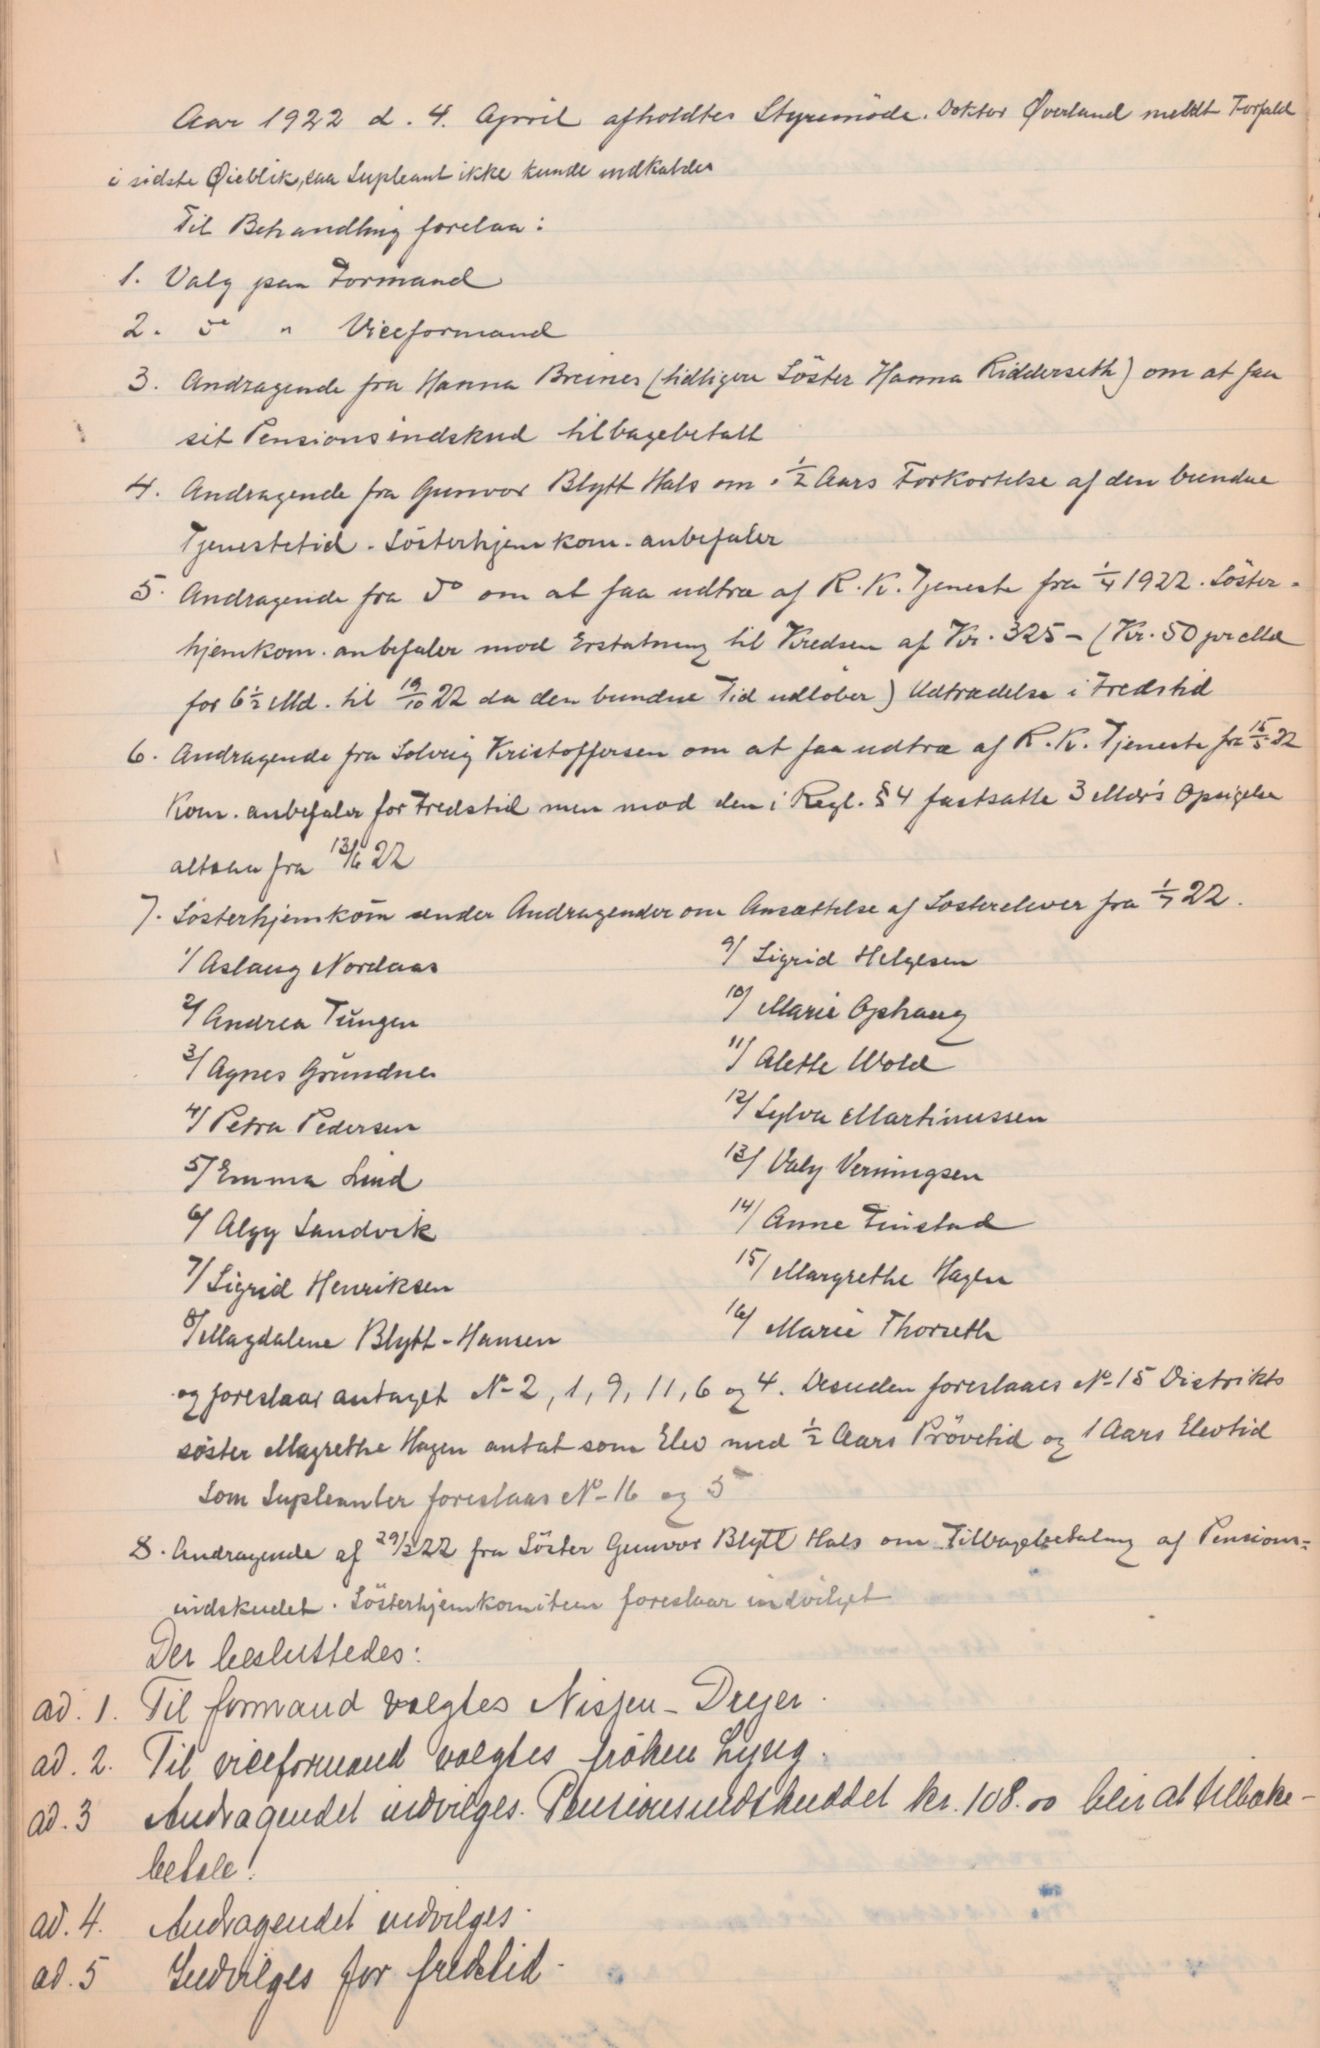 Aar 1922 d. 4. April afholdtes Styremöde. Doktor Øverland meldt Forfald
i sidste Øieblik, saa Supleant ikke kunde indkaldes
Til Behandling forelaa:
1. Valg paa Formand
2. do " Viceformand
3. Andragende fra Hanna Breines (tidligere Söster Hanna Ridderseth) om at faa
sit Pensionsindskud tilbagebetalt
4. Andragende fra Gunvor Blytt Hals om 1/2 Aars Forkortelse af den bundne
Tjenestetid. Sösterhjemkom. anbefaler
5. Andragende fra do om at faa udtræ af R. K. Tjeneste fra 1/4 1922. Söster-
hjemkom. anbefaler mod Erstatning til Kredsen af Kr. 325- (Kr. 50 pr Md
for 6 1/2 Md. til 19/10 22 da den bundne Tid udlöber) Udtrædelse i Fredstid
6. Andragende fra Solveig Kristoffersen om at faa udtræ af R. K. Tjeneste fra 15/5 22
Kom. anbefaler for Fredstid men mod den i Regl. § 4 fastsatte 3 Mdr's Opsigelse
altsaa fra 13/6 22
7. Sösterhjemkom sender Andragender om Ansættelse af Sösterelever fra 1/7 22.
1/ Aslaug Nordaas
2/ Andrea Tungen
3/ Agnes Grundnes
4/ Petra Pedersen
5/ Emma Lind
6/ Algy Sandvik
7/ Sigrid Henriksen
8/ Magdalene Blytt-Hansen
9/ Sigrid Helgesen
10/ Marie Ophaug
11/ Alette Wold
12/ Sylva Martinussen
13/ Valy Verningsen
14/ Anne Finstad
15/ Margrethe Hagen
16/ Marie Thorseth
og foreslaar antaget No 2, 1, 9, 11, 6 og 4. Desuden foreslaaes No 15 Distrikts
söster Magrethe Hagen antat som Elev med 1/2 Aars Prövetid og 1 Aars Elevtid
Som Supleanter foreslaas No 16 og 5
8. Andragende af 29/3 22 fra Söster Gunvor Blytt Hals om Tilbagebetaling af Pensions-
indskudet. Sösterhjemkomiteen foreslaar indvilget
Der besluttedes:
ad. 1. Til formand valgtes Nissen-Dreyer.
ad. 2. Til viceformand valgtes fröken Lyng.
ad. 3 Andragendet indvilges. Pensionsindskuddet kr. 108.00 blir at tilbake-
betale.
ad. 4. Andragendet indvilges.
ad. 5 Indvilges for fredstid.